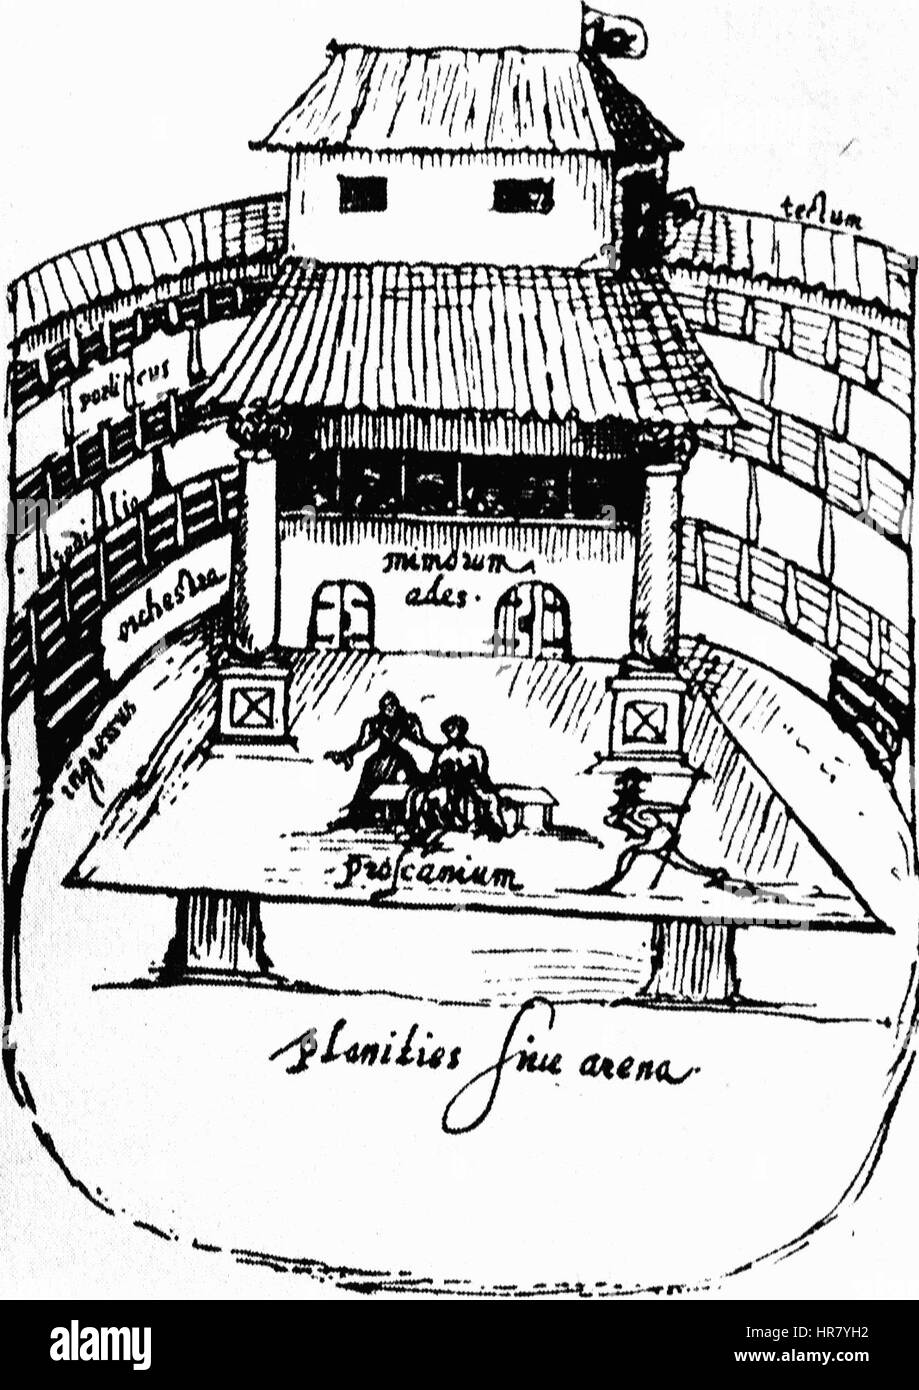 tectum
porticus
sedilia
orchestra
mimorum
ædes.
ingressus
proscænium
planities sive arena.
alamy
Image ID: HR7YH2
www.alamy.com